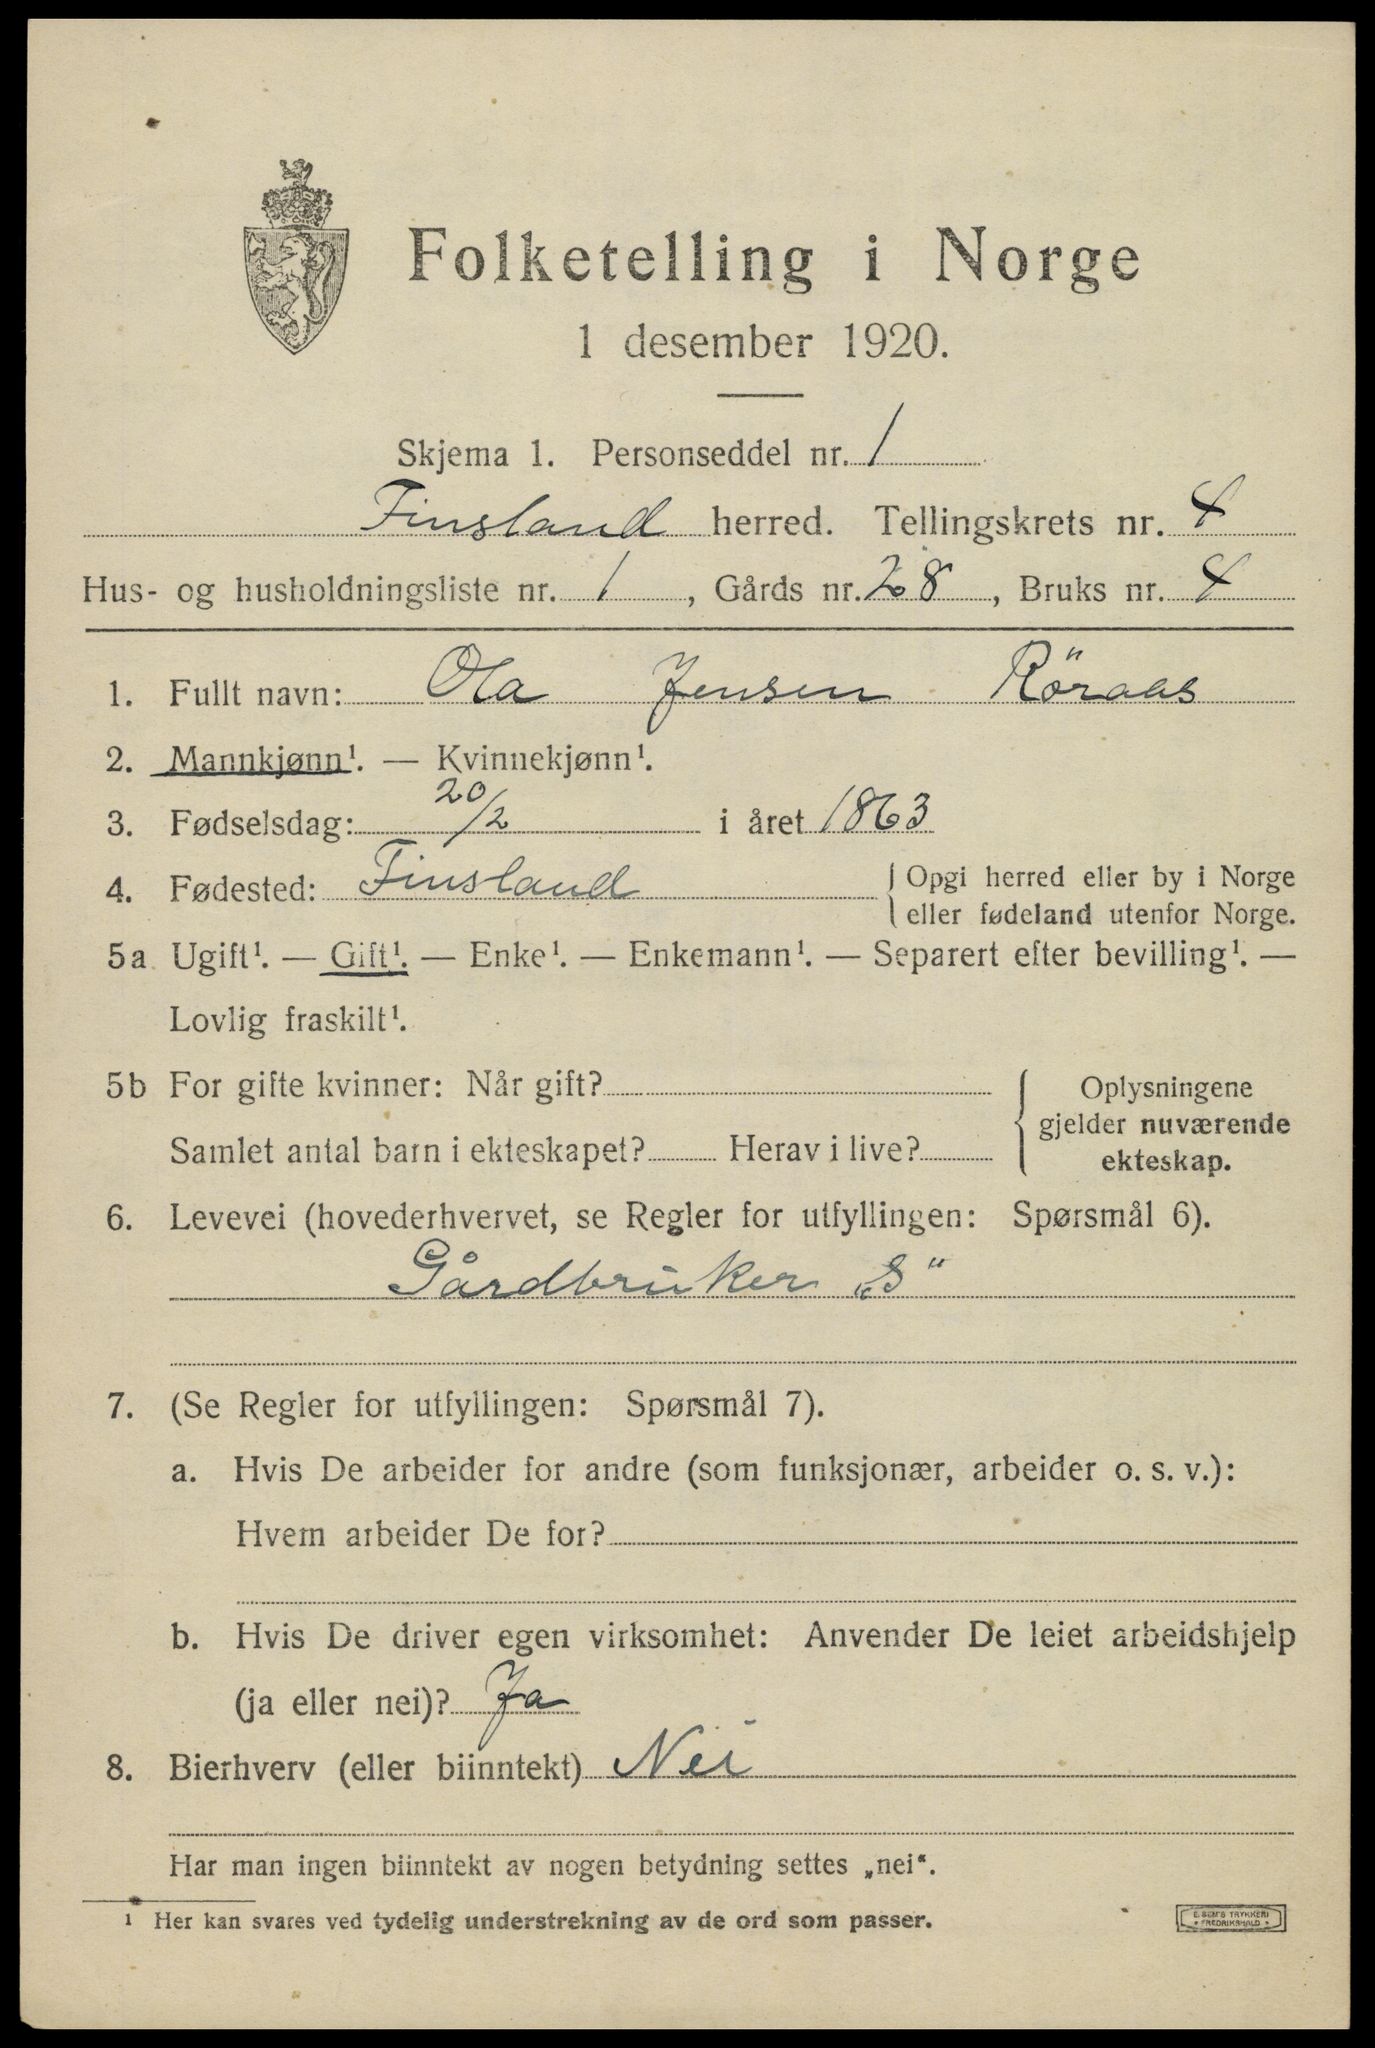 Folketelling i Norge
1 desember 1920.
Skjema 1. Personseddel nr. 1
Finsland herred. Tellingskrets nr. 4
Hus- og husholdningsliste nr. 1, Gårds nr. 28, Bruks nr. 4
1. Fullt navn: Ola Jensen Röraas
2. Mannkjønn¹. — Kvinnekjønn¹.
3. Fødselsdag: 20/2 i året 1863
4. Fødested: Finsland { Opgi herred eller by i Norge
eller fødeland utenfor Norge.
5a Ugift¹. — Gift¹. — Enke¹. — Enkemann¹. — Separert efter bevilling¹. —
Lovlig fraskilt¹.
5b For gifte kvinner: Når gift?
Samlet antal barn i ekteskapet? Herav i live?
{ Oplysningene
gjelder nuværende
ekteskap.
6. Levevei (hovederhvervet, se Regler for utfyllingen: Spørsmål 6).
Gårdbruker „S"
7. (Se Regler for utfyllingen: Spørsmål 7).
a. Hvis De arbeider for andre (som funksjonær, arbeider o. s. v.):
Hvem arbeider De for?
b. Hvis De driver egen virksomhet: Anvender De leiet arbeidshjelp
(ja eller nei)? Ja
8. Bierhverv (eller biinntekt) Nei
Har man ingen biinntekt av nogen betydning settes „nei".
¹ Her kan svares ved tydelig understrekning av de ord som passer.
E. SEM'S TRYKKERI
• FREDRIKSHALD •